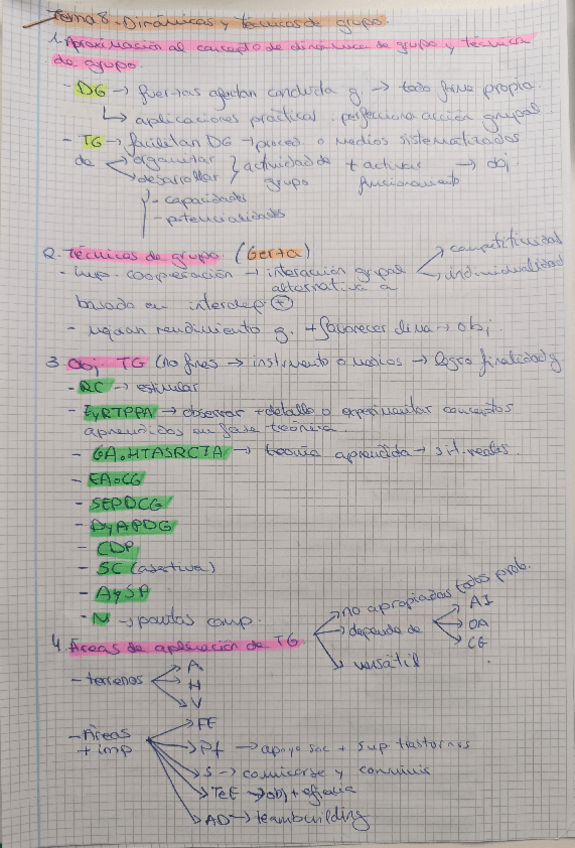 Tema 8 - Dinámicas y técnicas de grupo.
1. Aproximación al concepto de dinámica de grupo y técnica
de grupo.
- DG → fuerzas afectan conducta g. → todo forma propia
↳ aplicaciones prácticas · perfecciona acción grupal
- TG → facilitan DG → proced. o medios sistematizados
de organizar desarrollar actividad de grupo + activar funcionamiento → obj
- capacidades
- potencialidades
2. Técnicas de grupo. (Gerza)
- imp. cooperación → interacción grupal alternativa a competitividad individualidad
basada en interdep. +
- mejoran rendimiento g. + favorecer clima → obj.
3. Obj TG (no fines → instrumento o medios → logro finalidad g.
- RC → estimular
- EyRTPPA → observar + detalle o experimentar conceptos
aprendidos en fase teórica.
- GA.HTASRCTA → teoría aprendida → sit. reales.
- EA.CG
- SEPDCG
- DyAPDG
- CDP
- SC (asertiva)
- AySP
- N → pautas comp.
4. Áreas de aplicación de TG
no apropiadas todos prob.
depende de AI OA CG
versátil
- terrenos A H V
- Áreas
+ imp
FE
Pf → apoyo soc + sup trastornos
S → comunicarse y
TeE → obj + eficacia
AD → teambuilding